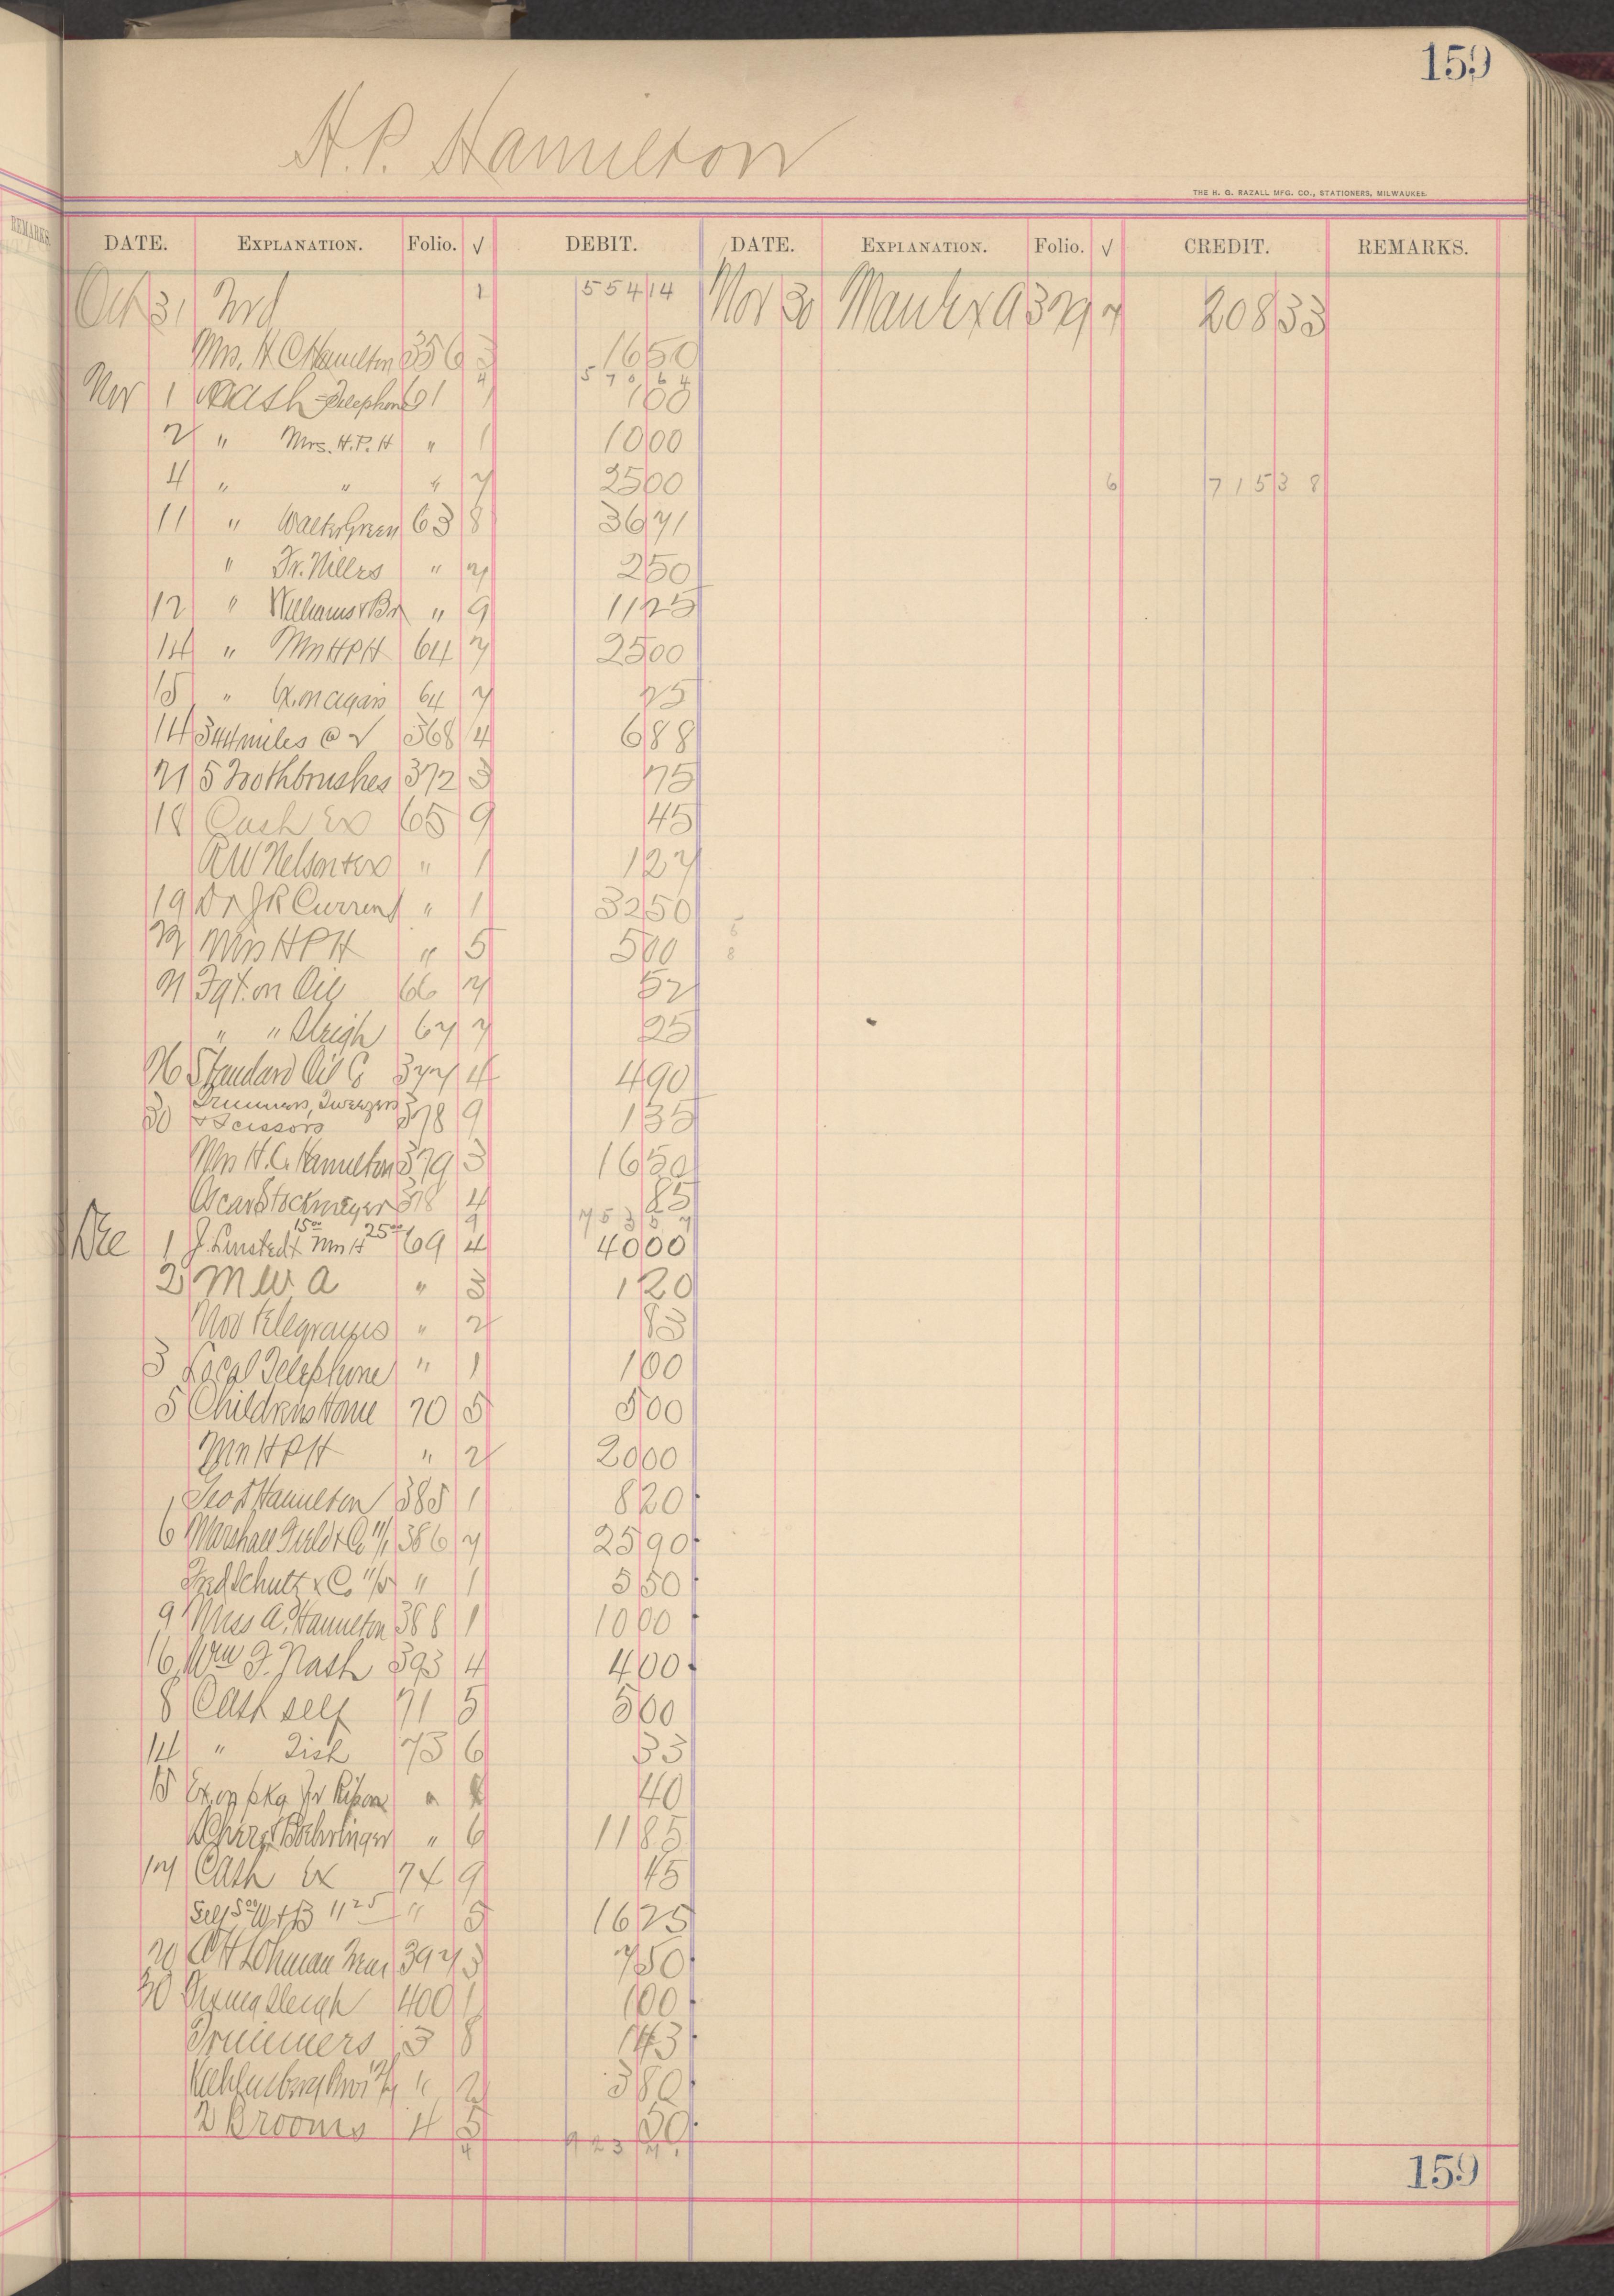 159
H. P. Hamilton
THE H. G. RAZALL MFG. CO., STATIONERS, MILWAUKEE.
REMARKS.
DATE. EXPLANATION. Folio. √ DEBIT. DATE. EXPLANATION. Folio. √ CREDIT. REMARKS.
Oct 31 Frd 1 554 14 Nov 30 379 7 208 33
Mrs. H C Hamilton 356 3 16 50
4 570 64
Nov 1 Cash Telephone 61 1 1 00
2 " Mrs. H. P. H " 1 10 00
4 " " " 7 25 00 6 715 38
11 " Walter Green 63 8 36 71
" Fr. Hilles " 7 2 50
12 " Williams & Br " 9 11 25
14 " Mrs H P H 64 7 25 00
15 " Ex. on again 64 7 25
14 344 miles @ 2 368 4 6 88
21 5 Toothbrushes 372 3 75
18 Cash Ex 65 9 45
R W Nelson + ex " 1 1 27
19 Dr J R Current " 1 32 50
22 Mrs H P H " 5 5 00
21 Fgt. on Oil 66 7 52
" " Sleigh 67 7 25
26 Standard Oil Co 377 4 4 90
30 Trimmers, Tweezers & Scissors 378 9 1 35
Mrs H. C. Hamilton 379 3 16 50
Oscar Stockmeyer 378 4 85
9 753 57
Dec 1 J. Linstedt 15 00 Mrs H 25 00 69 4 40 00
2 M W A " 3 1 20
Nov telegrams " 2 83
3 Local Telephone " 1 1 00
5 Childrens Home 70 5 5 00
Mrs H P H " 2 20 00
Geo Hamilton 385 1 8 20
6 Marshall Field & Co 11/1 386 7 25 90
Fred Schutt & Co " 1 5 50
9 Miss A. Hamilton 388 1 10 00
16 Wm F. Nash 393 4 4 00
8 Cash self 71 5 5 00
14 " Fish 73 6 33
15 Ex. on pkg fr Ripon " 40
& Boehringer " 6 11 85
17 Cash Ex 74 9 45
Self 5 00 W & B 11 25 " 5 16 25
20 C H Lohman 397 3 7 50
30 Fixing Sleigh 400 1 1 00
Trimmers 3 8 1 43
" 2 3 80
2 Brooms 4 5 50
4 923
159